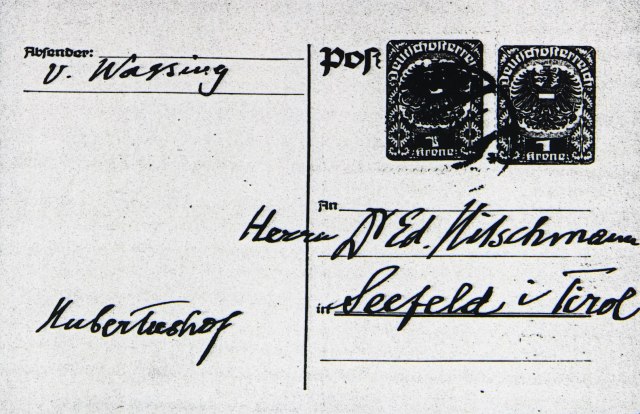 Absender:
v. Wassing
Post
Deutschösterreich
1
Krone
Deutschösterreich
1
Krone
An
Herrn Dr Ed. Hitschmann
in Seefeld i Tirol
Hubertushof